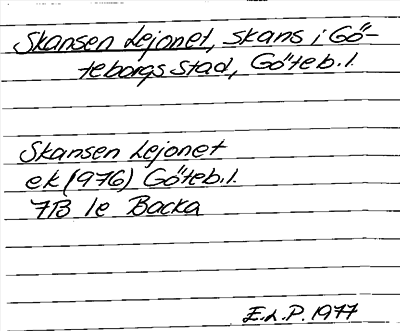 Skansen Lejonet, skans i Gö-
teborgs stad, Göteb. l.
Skansen Lejonet
ek (976) Göteb. l.
7B 1e Backa
E.L.P. 1977